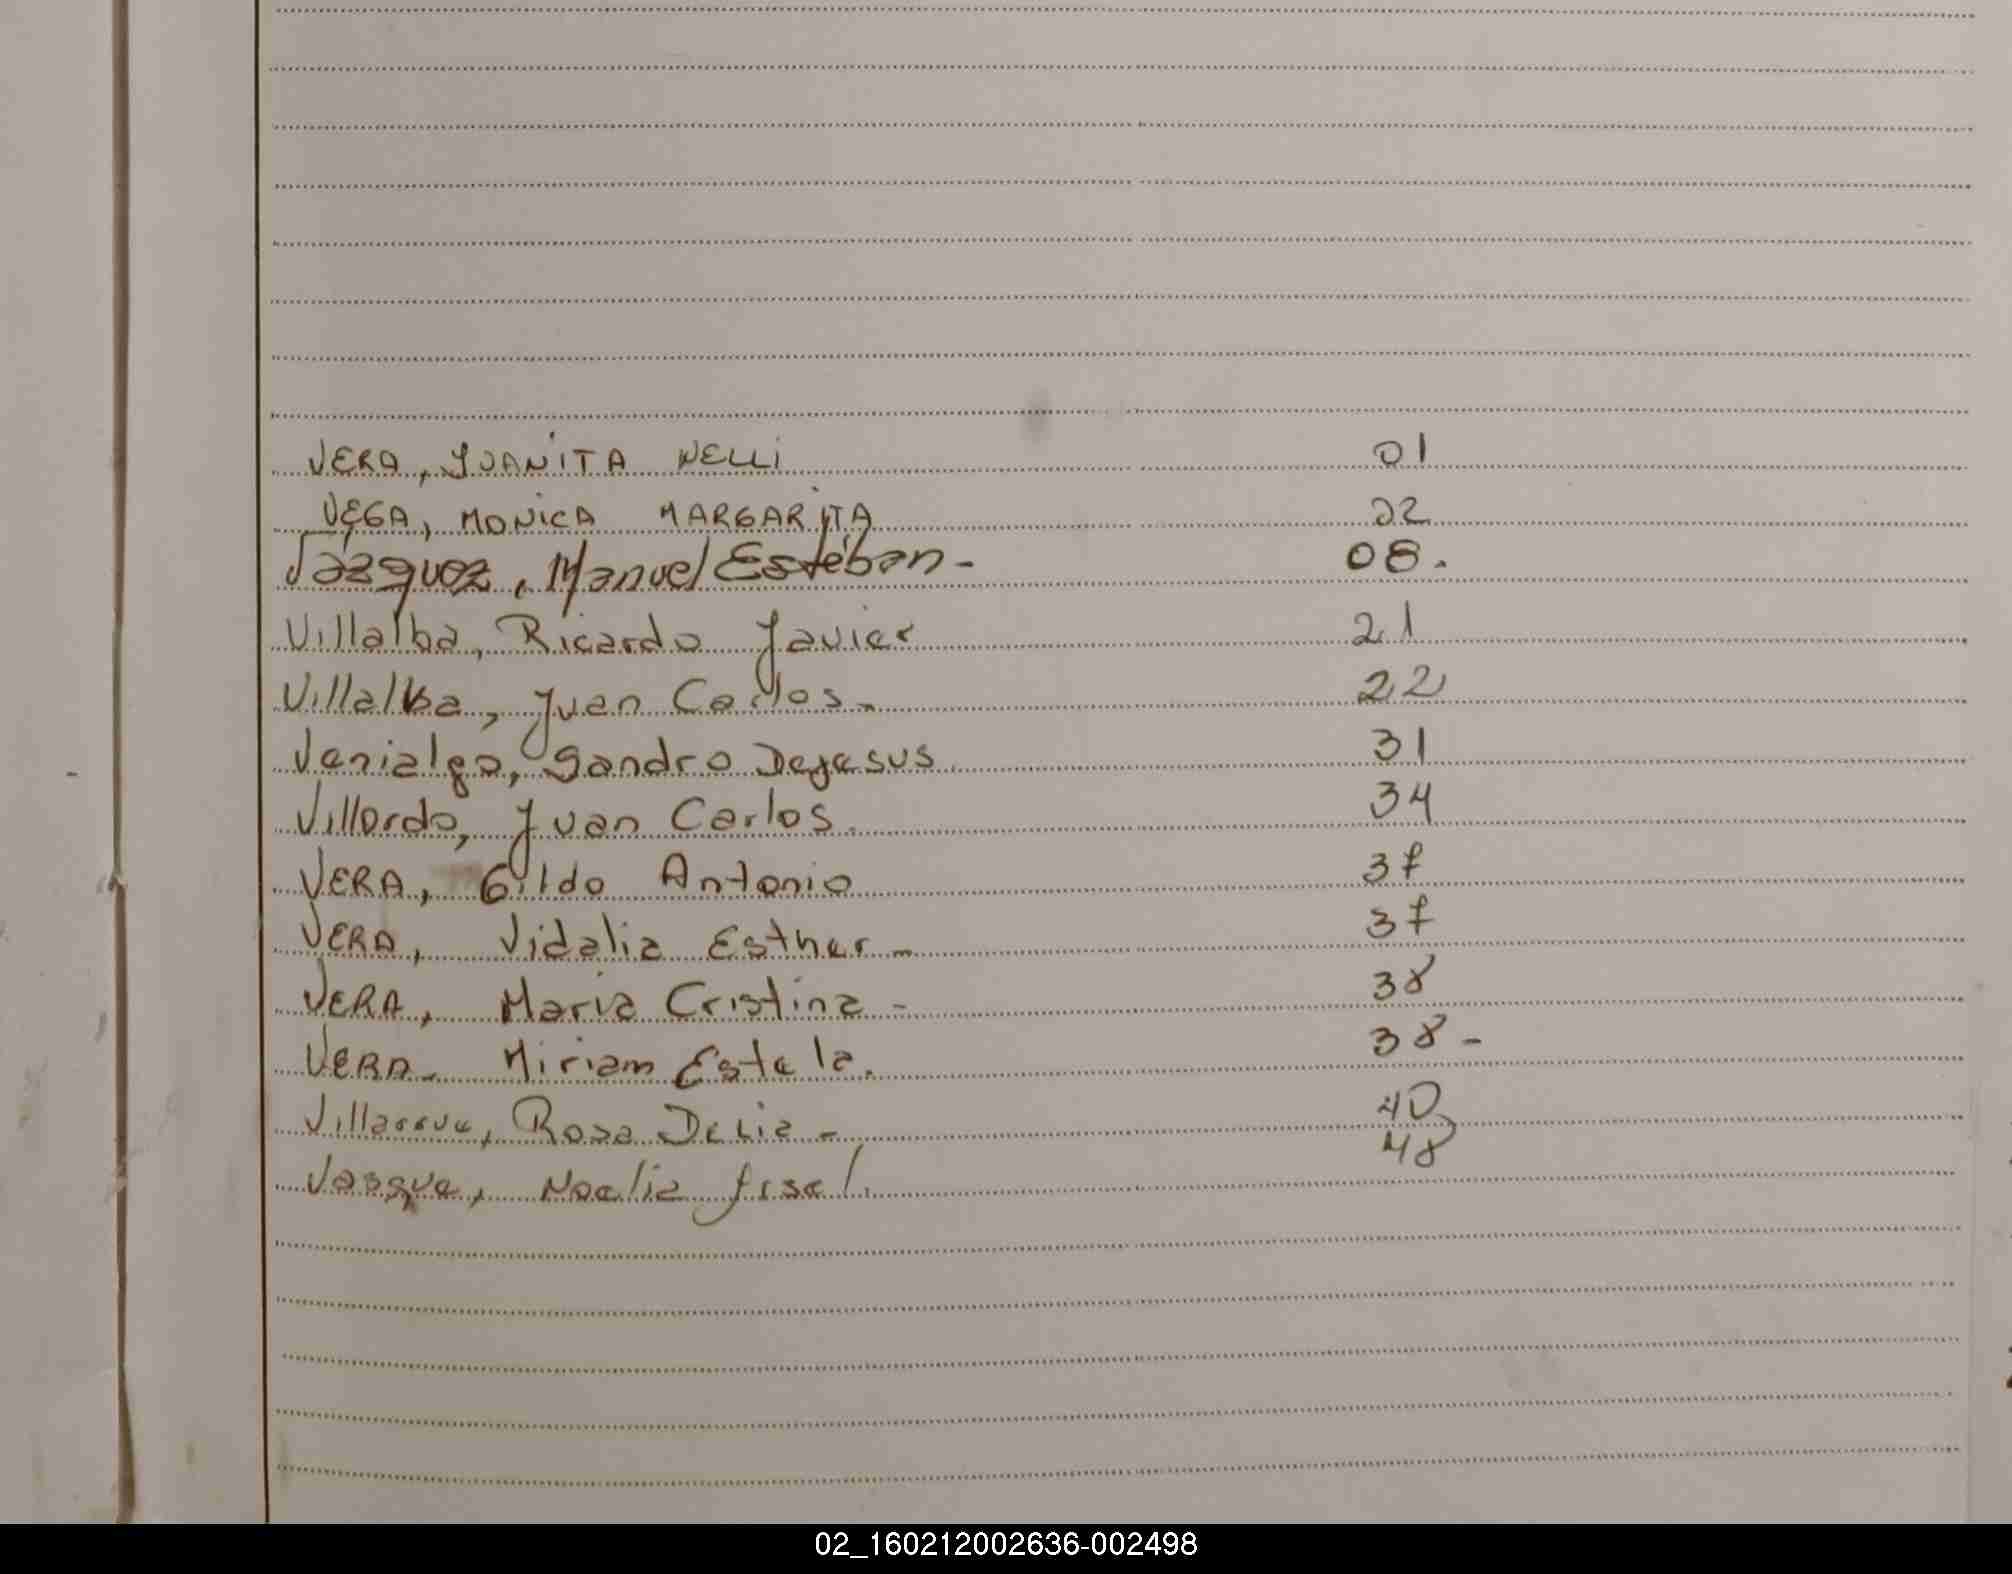 VERA, JUANITA NELLI 01
VEGA, MONICA MARGARITA 02
Vazquez, Manuel Esteban- 08.
Villalba, Ricardo Javier 21
Villalba, Juan Carlos- 22
Venialgo, Sandro Dejesus 31
Villordo, Juan Carlos. 34
VERA, Gildo Antonio 37
VERA, Vidalia Esther- 37
VERA, Maria Cristina- 38
VERA- Miriam Estela. 38-
Villarrue, Rosa Delia- 40
Vasque, Noelia 48
02_160212002636-002498